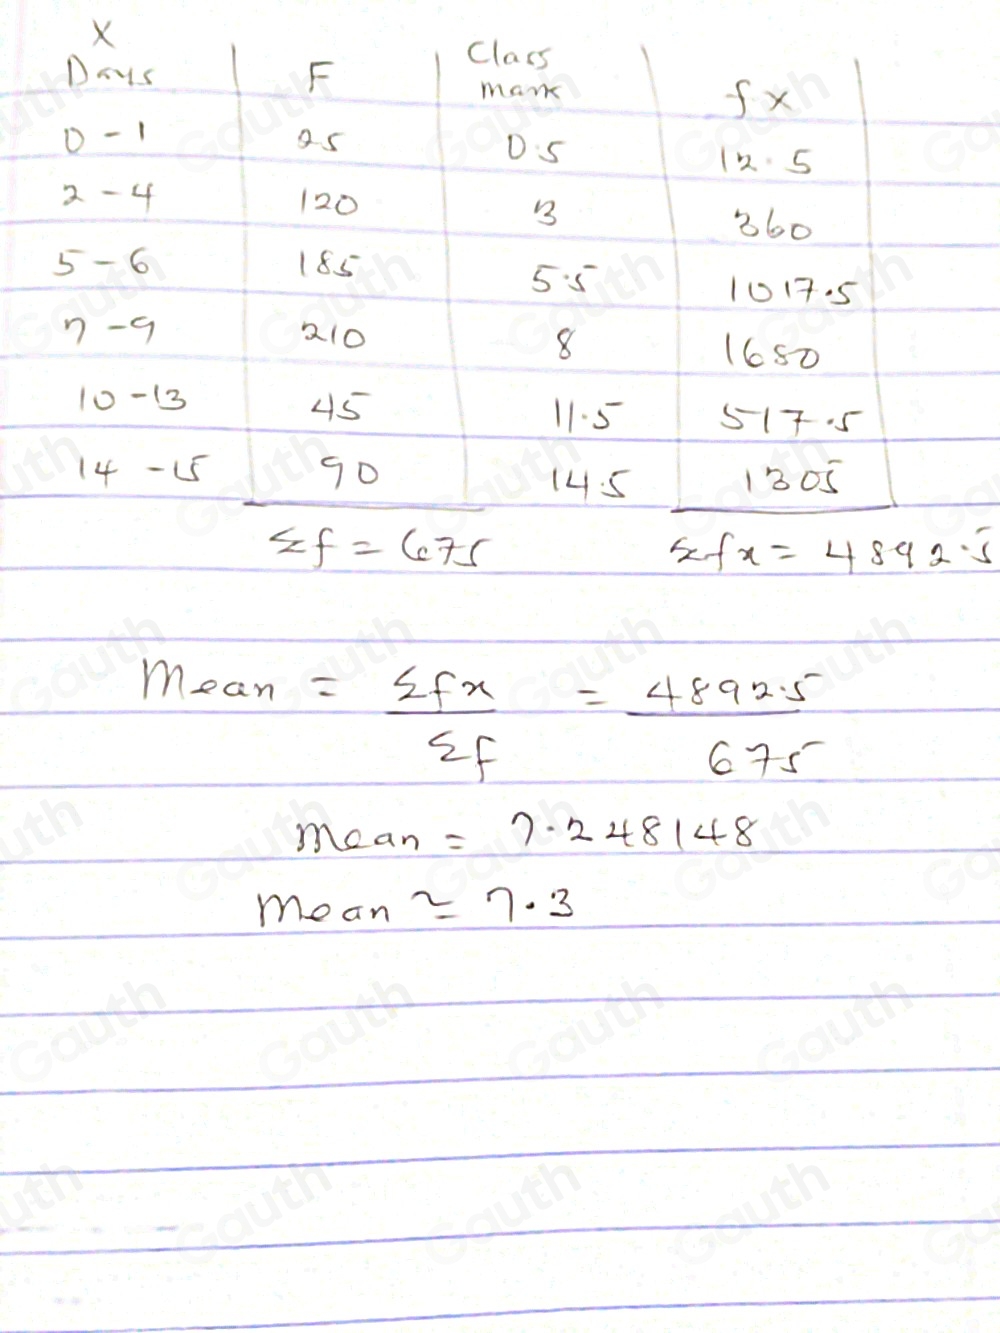 X
Days F Class mark fx
0 - 1 25 0.5 12.5
2 - 4 120 3 360
5 - 6 185 5.5 1017.5
7 - 9 210 8 1680
10 - 13 45 11.5 517.5
14 - 15 90 14.5 1305
Σf = 675 Σfx = 4892.5
Mean = Σfx = 4892.5
Σf 675
Mean = 7.248148
Mean ≃ 7.3